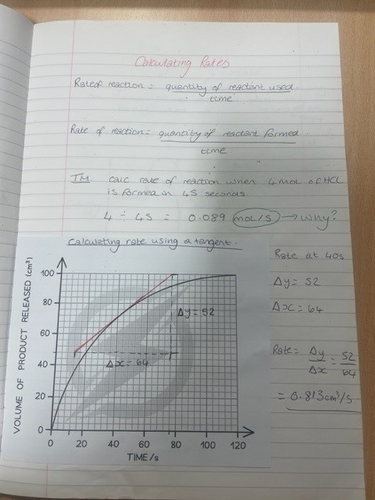 Calculating Rates
Rate of reaction = quantity of reactant used
time
Rate of reaction = quantity of reactant formed
time
TM calc rate of reaction when 4 mol of HCL
is formed in 45 seconds.
4 ÷ 45 = 0.089 mol/s → why?
Calculating rate using a tangent.
Rate at 40s
Δy = 52
Δx = 64
Rate = Δy = 52
Δx 64
= 0.813cm³/s
VOLUME OF PRODUCT RELEASED (cm³)
100
80
60
40
20
0
Δy = 52
Δx = 64
0 20 40 60 80 100 120
TIME/s